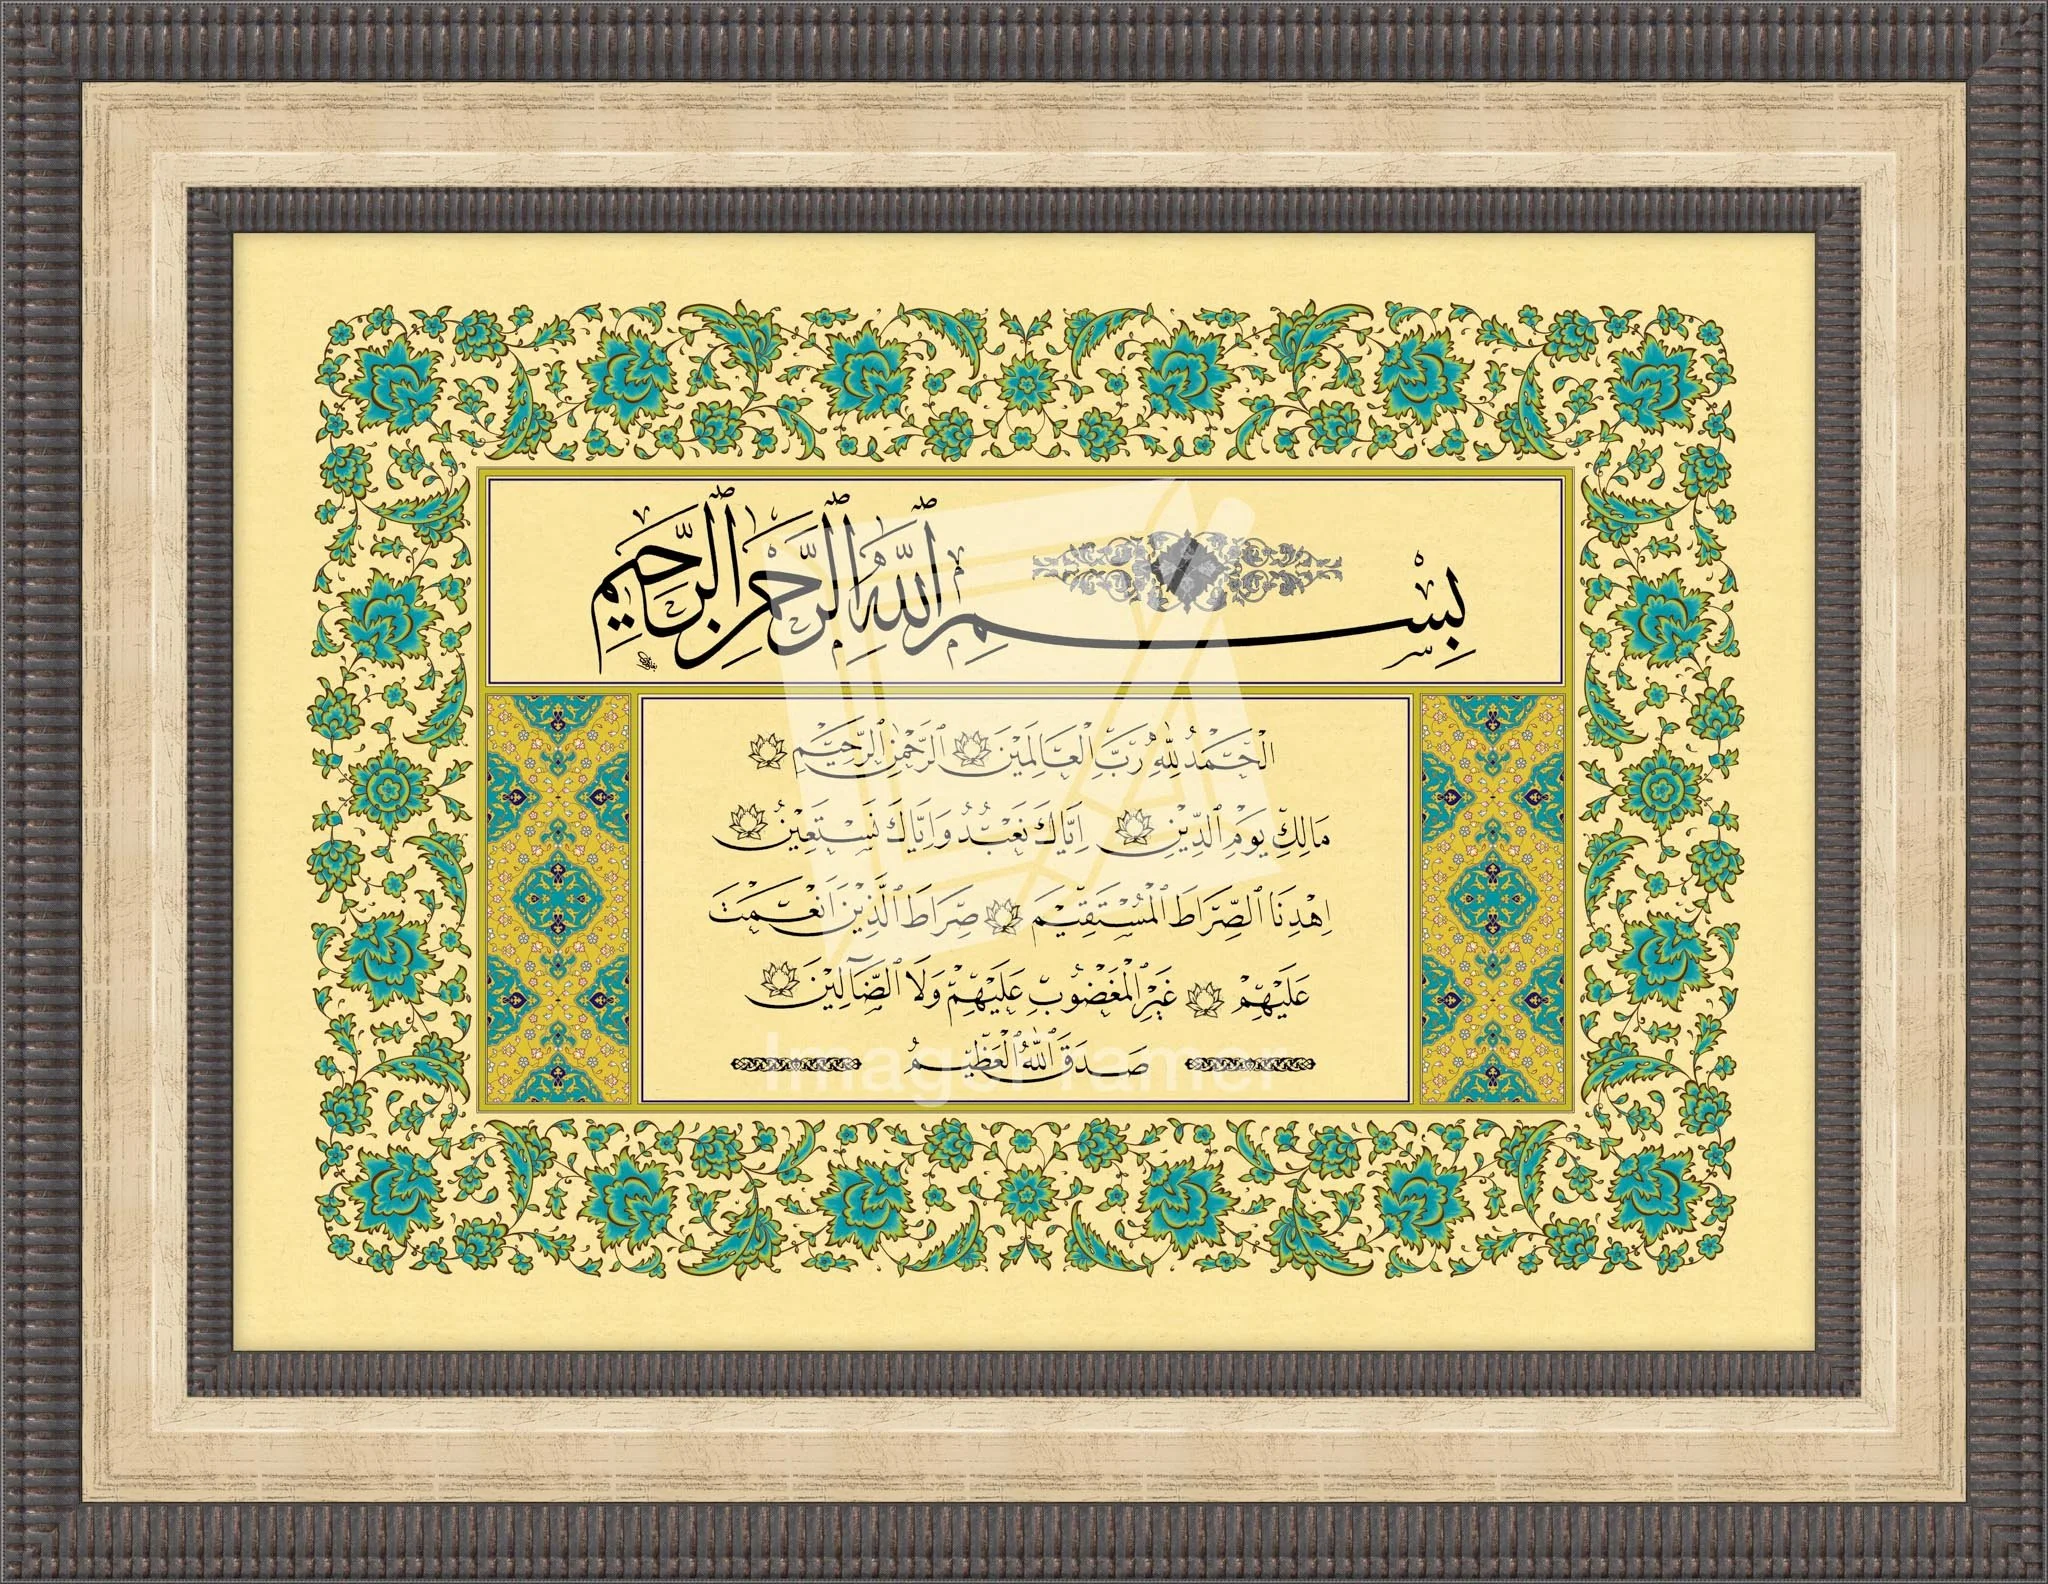 بِسْمِ ٱللَّهِ ٱلرَّحْمٰنِ ٱلرَّحِيمِ
ٱلْحَمْدُ لِلَّهِ رَبِّ ٱلْعَالَمِينَ ٱلرَّحْمٰنِ ٱلرَّحِيمِ
مَالِكِ يَوْمِ ٱلدِّينِ اِيَّاكَ نَعْبُدُ وَاِيَّاكَ نَسْتَعِينُ
اِهْدِنَا ٱلصِّرَاطَ ٱلْمُسْتَقِيمَ صِرَاطَ ٱلَّذِينَ اَنْعَمْتَ
عَلَيْهِمْ غَيْرِ ٱلْمَغْضُوبِ عَلَيْهِمْ وَلَا ٱلضَّآلِّينَ
صَدَقَ ٱللَّهُ ٱلْعَظِيمُ
ImageFramer